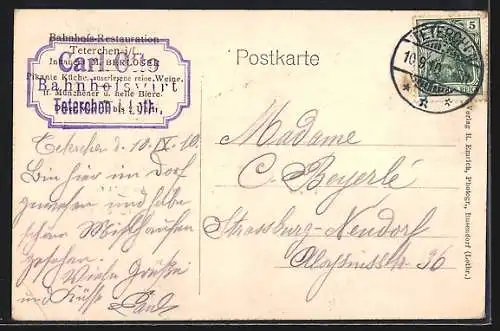 Bahnhofs-Restauration
Teterchen i/L.
Inhaber M. BERLOSER
Carl Otto
Pikante Küche, auserlesene reine Weine,
Bahnhofswirt
ff. Münchener u. helle Biere.
Teterchen i. Loth.
Postkarte
TETERCHEN
10.9.10
5
Teterchen d. 10. IX. 10.
Bin hier im Dorf
gewesen und habe
schöne
gesehen.
Viele Grüße
und Küsse
Paul
Madame
C. Beyerlé
Strassburg-Neudorf
36
Verlag H. Emrich, Photogr., Busendorf (Lothr.)